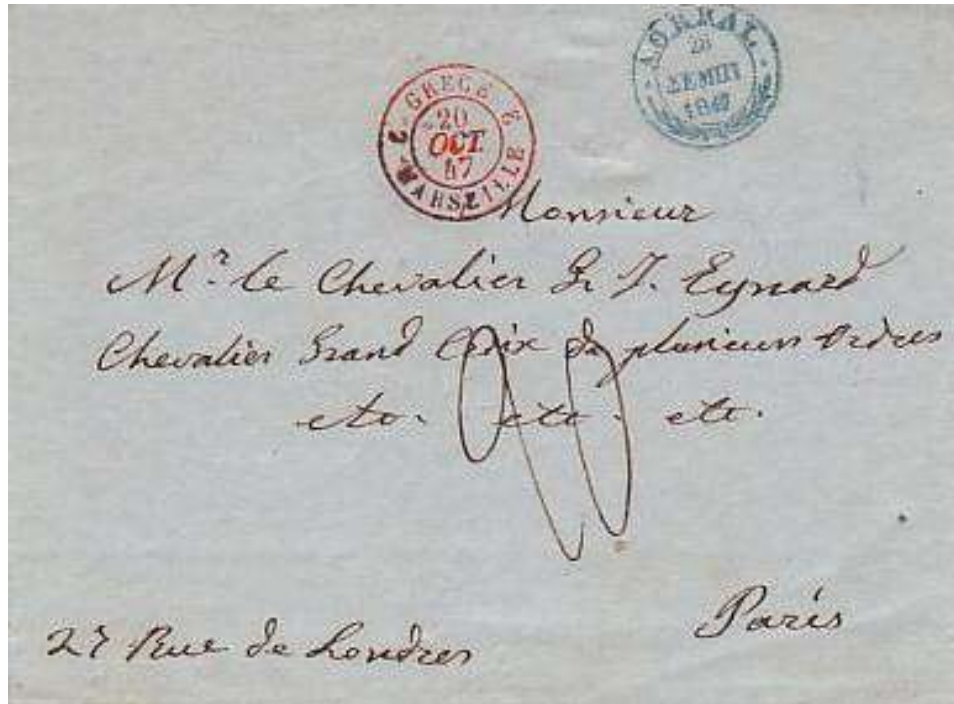 2 GRECE 2
20
OCT.
47
MARSEILLE
28
1847
Monsieur
Mr. le Chevalier
Eynard
Chevalier Grand Croix de plusieurs Ordres
etc. etc. etc.
Paris
27 Rue de Londres